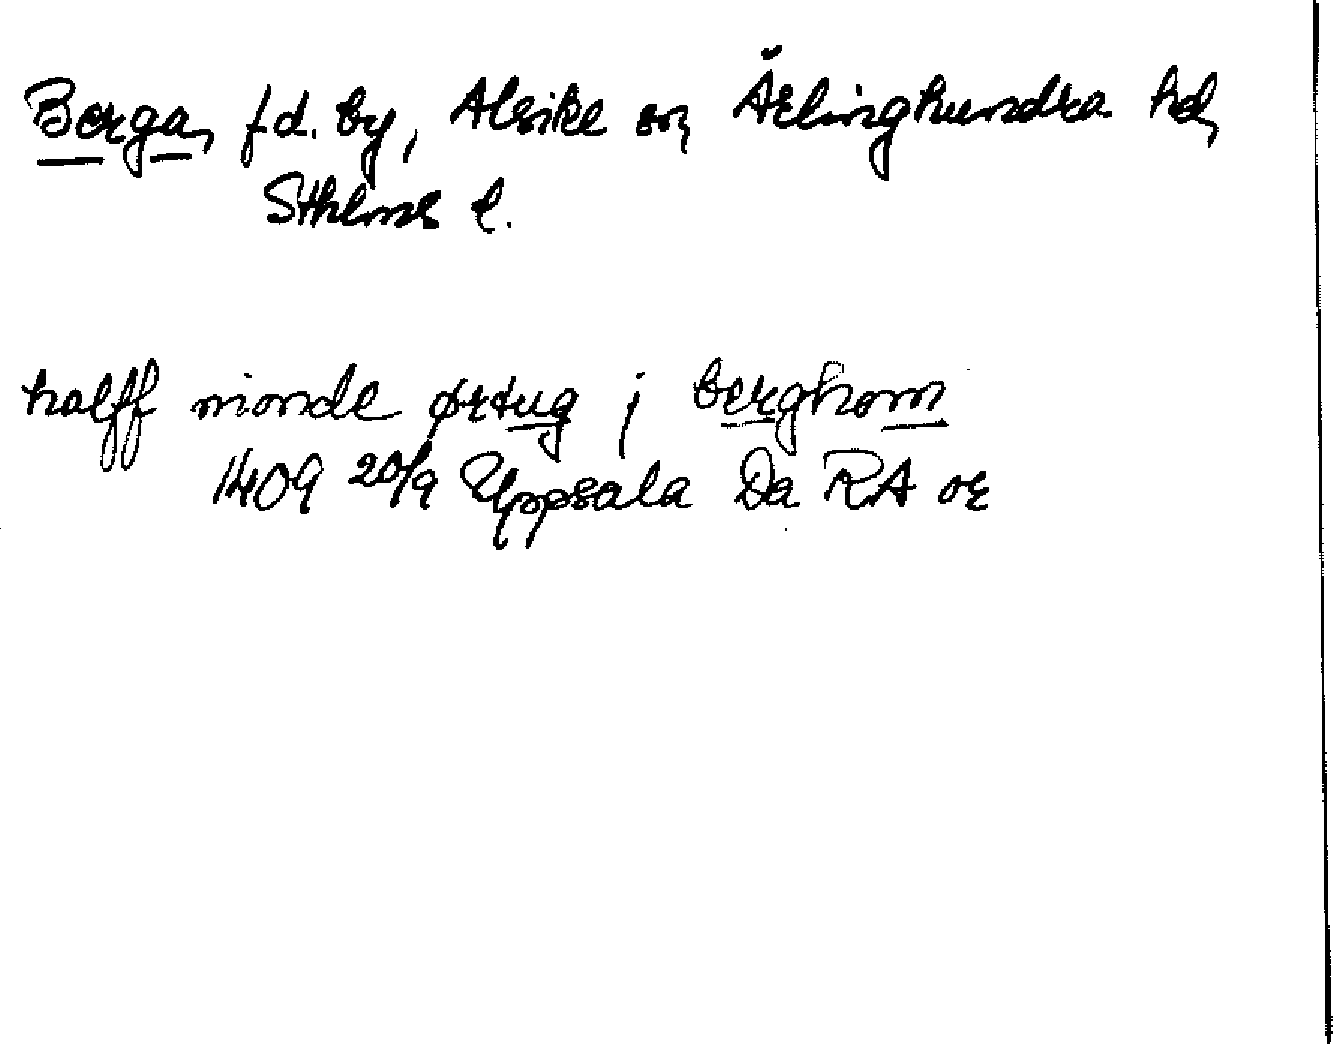 Berga, fd. by, Alsike sn, Ärlinghundra hd,
Sthlms l.
halff niønde ørtug j berghom
1409 20/9 Uppsala Da RA or